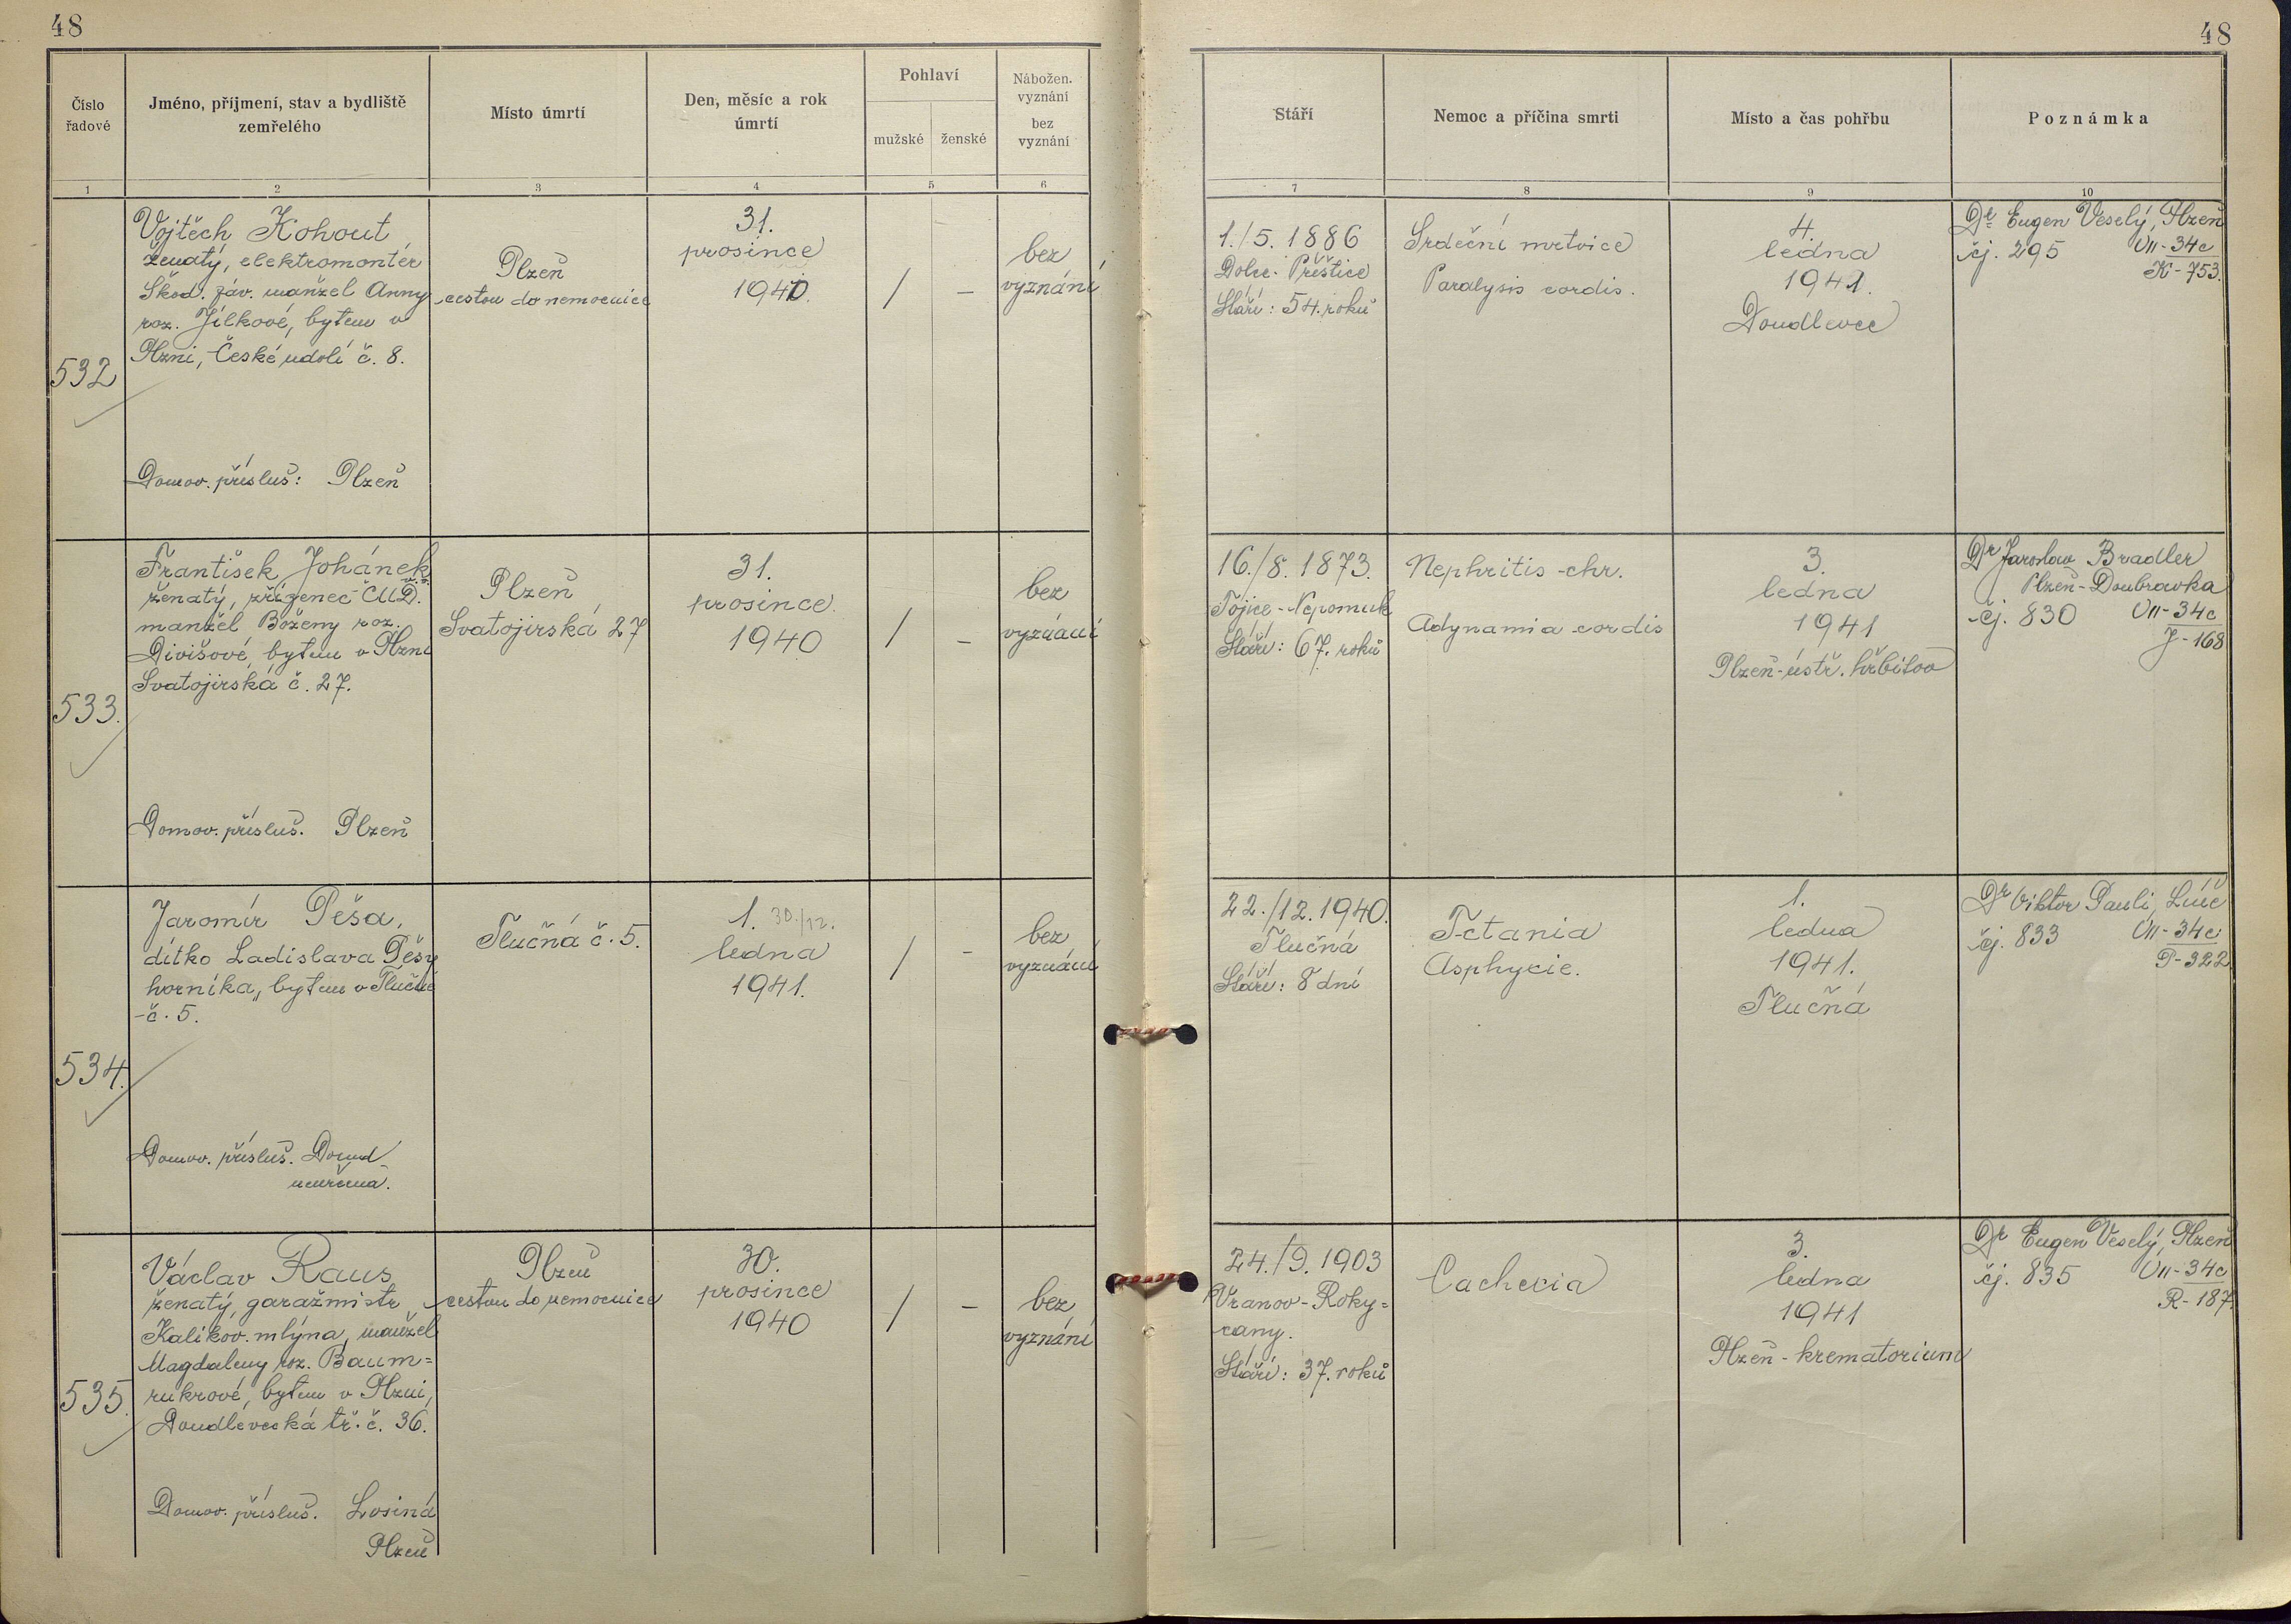 48
48
Číslo
řadové
Jméno, příjmení, stav a bydliště
zemřelého
Místo úmrtí
Den, měsíc a rok
úmrtí
Pohlaví
mužské
ženské
Nábožen.
vyznání
bez
vyznání
Stáří
Nemoc a příčina smrti
Místo a čas pohřbu
Poznámka
1
2
3
4
5
6
7
8
9
10
532
Vojtěch Kohout
ženatý, elektromontér
Škod. záv. manžel Anny
roz. Jílkové, bytem v
Plzni, České údolí č. 8.
Domov. přísluš: Plzeň
Plzeň
cestou do nemocnice
31.
prosince
1940.
/
–
bez
vyznání
1./5. 1886
Dolce - Přeštice
Stáří: 54. roků
Srdeční mrtvice
Paralysis cordis.
4.
ledna
1941.
Doudlevce
Dr Eugen Veselý, Plzeň
čj. 295
VII-34c
K-753.
533.
František Johánek
ženatý, zřízenec ČMD.
manžel Boženy roz.
Divišové, bytem v Plzni
Svatojirská č. 27.
Domov. přísluš. Plzeň
Plzeň
Svatojirská 27
31.
prosince
1940
/
–
bez
vyznání
16./8. 1873.
Tojice - Nepomuk
Stáří: 67. roků
Nephritis - chr.
Adynamia cordis
3.
ledna
1941
Plzeň - ústř. hřbitov
Dr Jaroslav Bradler
Plzeň - Doubravka
čj. 830
VII-34c
J-168
534.
Jaromír Peša,
dítko Ladislava Pešy
horníka, bytem v Tlučné
č. 5.
Domov. přísluš.
neurčená.
Tlučná č. 5.
1. 30./12.
ledna
1941.
/
-
bez
vyznání
22./12. 1940.
Tlučná
Stáří: 8 dní
Tetania
Asphyxie.
1.
ledna
1941.
Tlučná
Dr Viktor Pauli,
čj. 833
VII-34c
P-322
535.
Václav Raus
ženatý, garažmistr
Kalikov. mlýna, manžel
Magdaleny roz. Baum=
rukrové, bytem v Plzni,
Doudlevecká tř. č. 36.
Domov. přísluš. Losiná
Plzeň
Plzeň
cestou do nemocnice
30.
prosince
1940
/
–
bez
vyznání
24./9. 1903
Vranov - Roky=
cany.
Stáří: 37. roků
Cachexia
3.
ledna
1941
Plzeň - krematorium
Dr Eugen Veselý, Plzeň
čj. 835
VII-34c
R-187